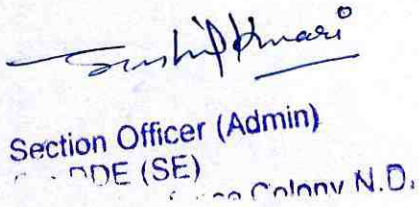 Sushil Kumari
Section Officer (Admin)
DDE (SE)
Colony N.D.